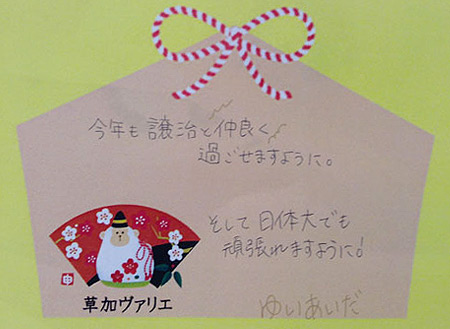 今年も譲治と仲良く
過ごせますように。
そして日体大でも
頑張れますように！
ゆいあいだ
申
草加ヴァリエ